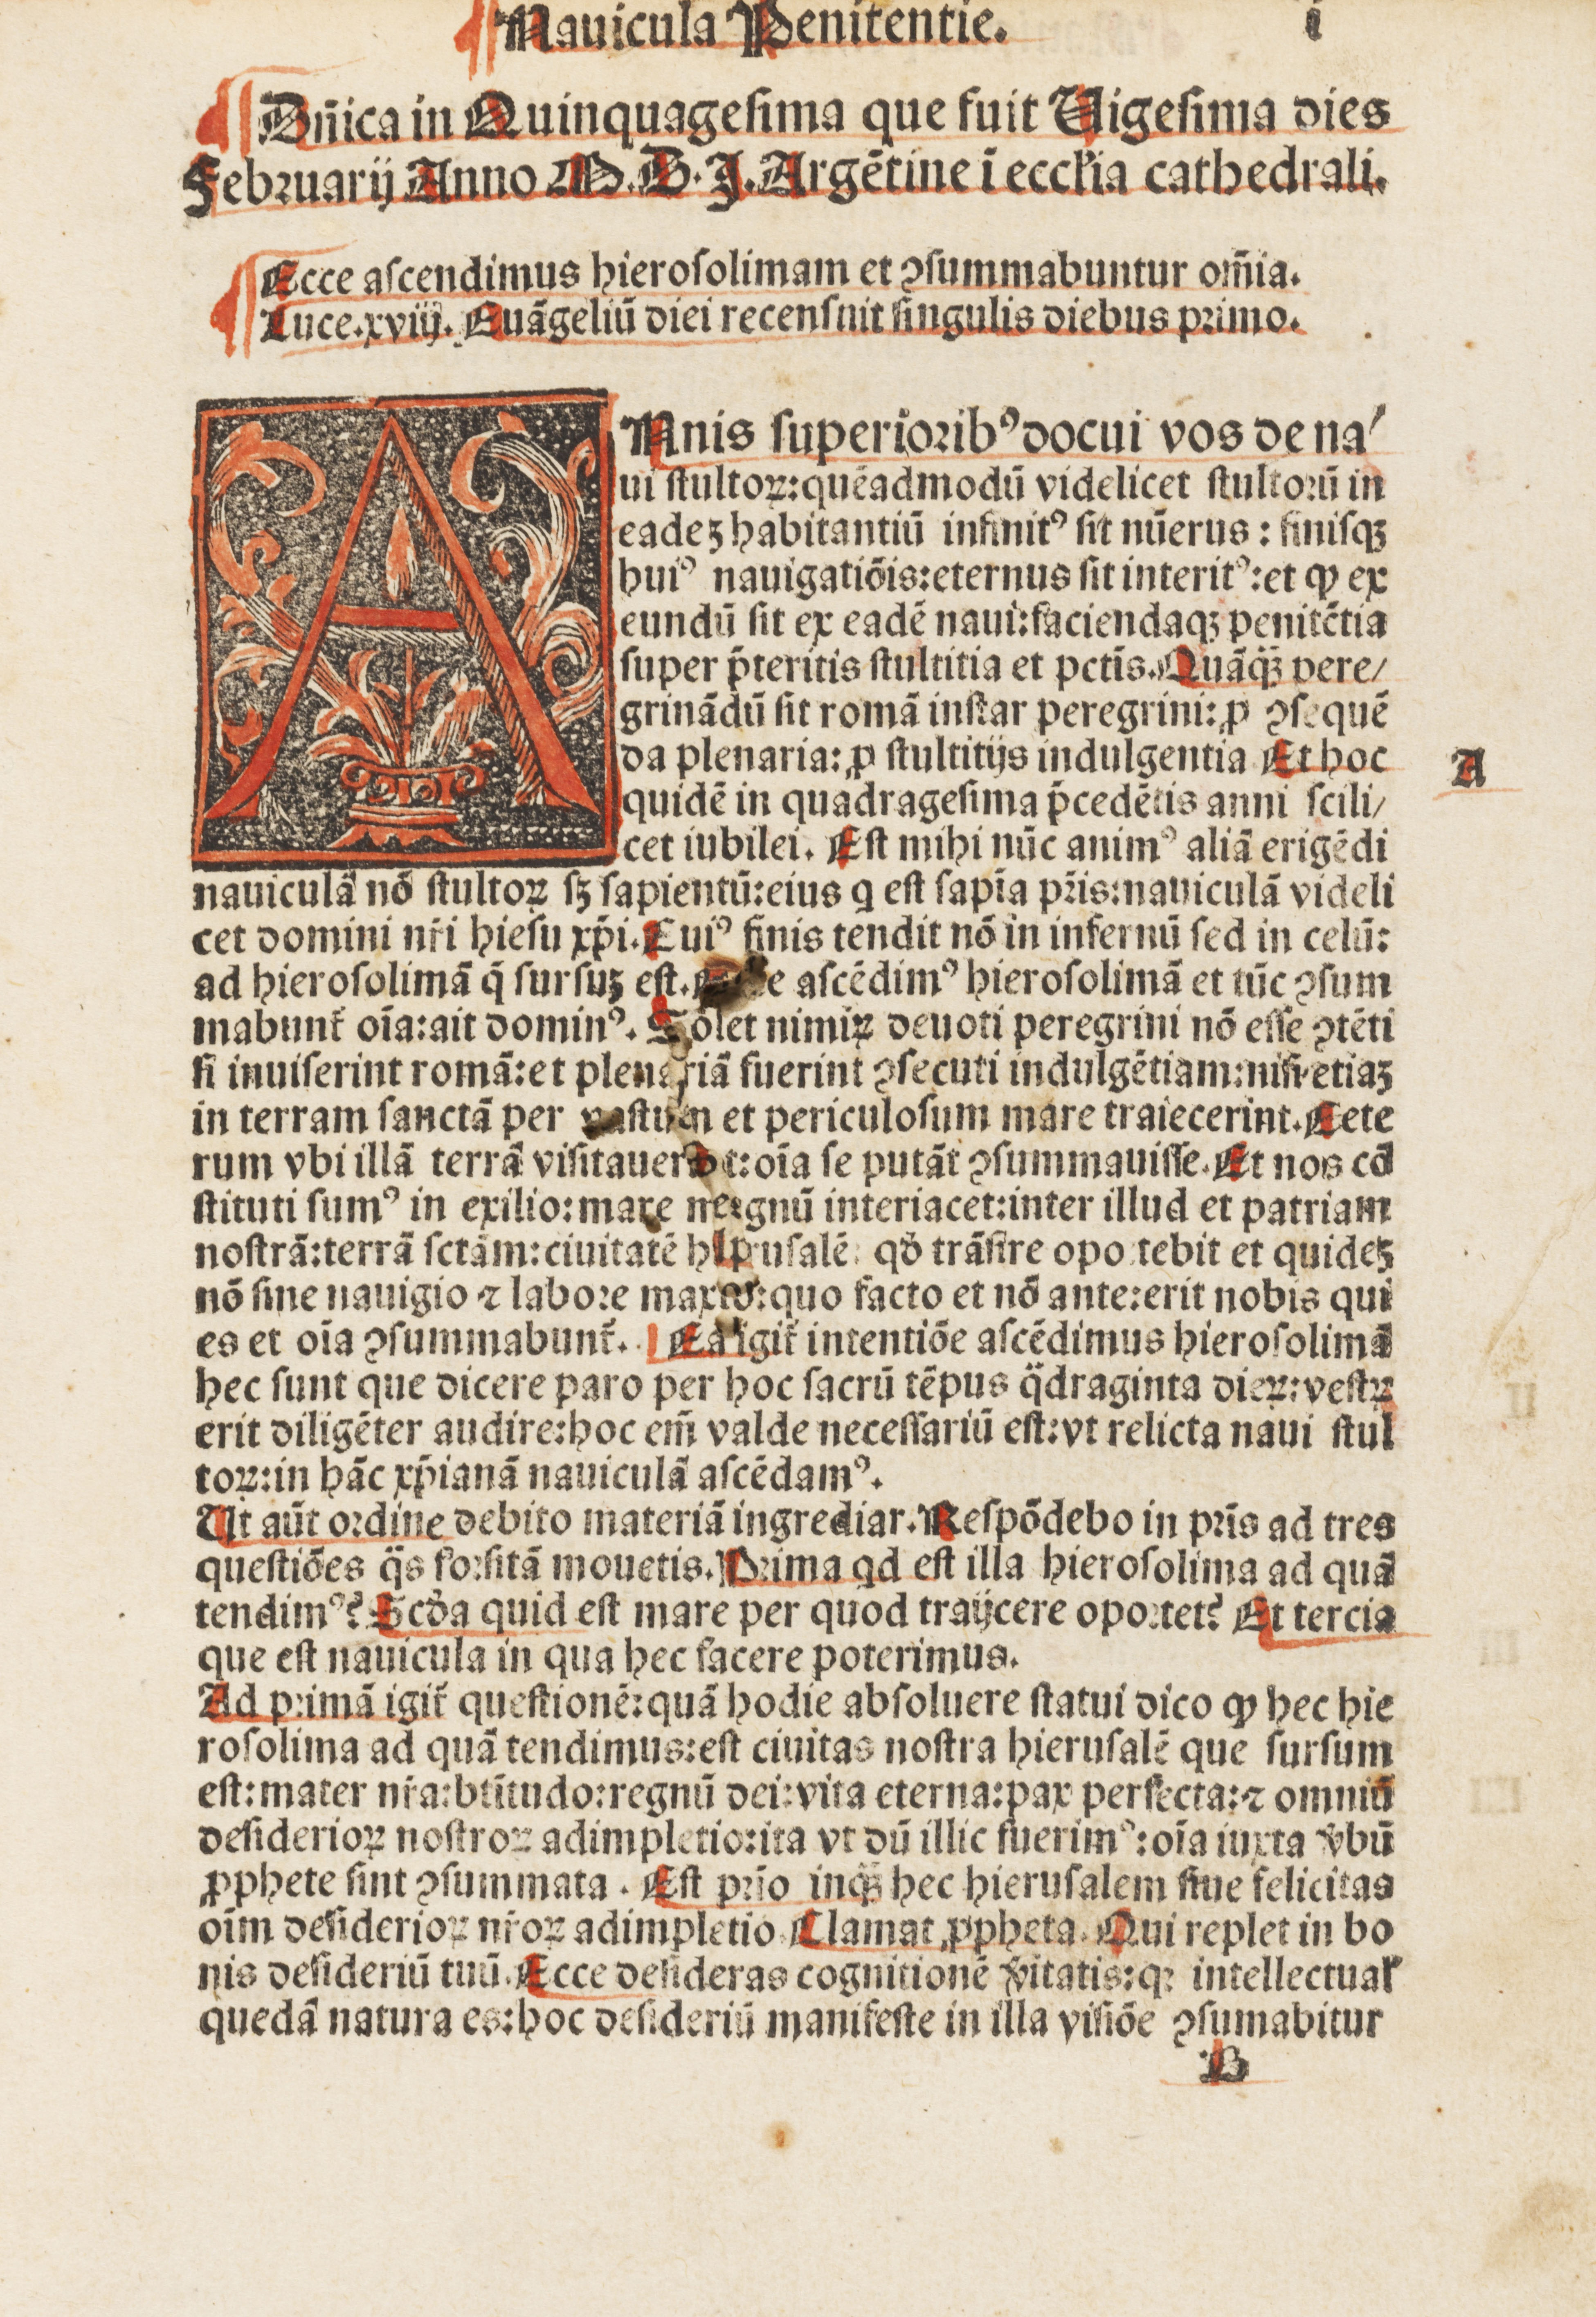 Nauicula Penitentie. i
Dñica in Quinquagesima que fuit Uigesima dies
Februarij Anno M.D.J. Argẽtine ĩ eccl'ia cathedrali.
Ecce ascendimus hierosolimam et ꝯsummabuntur om̃ia.
Luce.xviij. Euãgeliũ diei recensuit singulis diebus primo.
ANnis superioribꝰ docui vos de na/
ui stultoꝝ: quẽadmodũ videlicet stultorũ in
eadeꝫ habitantiũ infinitꝰ sit nũerus: finisqꝫ
huiꝰ nauigatiõis: eternus sit interitꝰ: et ꝙ ex
eundũ sit ex eadẽ naui: faciendaqꝫ penitẽtia
super p̃teritis stultitia et pctĩs. Quãqꝫ pere/
grinãdũ sit romã instar peregrini: ꝓ ꝯsequẽ
da plenaria: ꝓ stultitijs indulgentia Et hoc
A
quidẽ in quadragesima p̃cedẽtis anni scili/
cet iubilei. Est mihi nũc animꝰ aliã erigẽdi
nauiculã nõ stultoꝝ sꝫ sapientũ: eius q est sapĩa pr̃is: nauiculã videli
cet domini nr̃i hiesu xp̃i. Cuiꝰ finis tendit nõ in infernũ sed in celũ:
ad hierosolimã q̃ sursuꝫ est. ascẽdimꝰ hierosolimã et tũc ꝯsum
mabunt̃ oĩa: ait dominꝰ. Solet nimiꝝ deuoti peregrini nõ esse ꝯtẽti
si inuiserint romã: et plenariã fuerint ꝯsecuti indulgẽtiam: nisi etiaꝫ
in terram sanctã per vastum et periculosum mare traiecerint. Cete
rum vbi illã terrã visitauerĩt: oĩa se putãt ꝯsummauisse. Et nos cõ
stituti sumꝰ in exilio: mare magnũ interiacet: inter illud et patriam
nostrã: terrã sctãm: ciuitatẽ qď trãsire oportebit et quideꝫ
nõ sine nauigio ⁊ labore maxĩo: quo facto et nõ ante: erit nobis qui
es et oĩa ꝯsummabunt̃. Ea igit̃ intentiõe ascẽdimus hierosolimã
hec sunt que dicere paro per hoc sacrũ tẽpus q̈draginta dieꝝ: vestꝝ
erit diligẽter audire: hoc em̃ valde necessariũ est: vt relicta naui stul
toꝝ: in hãc xp̃ianã nauiculã ascẽdamꝰ.
Ut aũt ordine debito materiã ingrediar. Respõdebo in prĩs ad tres
questiões q̈s forsitã mouetis. Prima qd est illa hierosolima ad quã
tendimꝰ? Scďa quid est mare per quod traijcere oportet? Et tercia
que est nauicula in qua hec facere poterimus.
Ad primã igit̃ questionẽ: quã hodie absoluere statui dico ꝙ hec hie
rosolima ad quã tendimus: est ciuitas nostra hierusalẽ que sursum
est: mater nr̃a: btĩtudo: regnũ dei: vita eterna: pax perfecta: ⁊ omniũ
desiderioꝝ nostroꝝ adimpletio: ita vt dũ illic fuerimꝰ: oĩa iuxta ṽbũ
ꝓphete sint ꝯsummata. Est prĩo inqꝫ hec hierusalem siue felicitas
oĩm desiderioꝝ nr̃oꝝ adimpletio. Clamat ꝓpheta. Qui replet in bo
nis desideriũ tuũ. Ecce desideras cognitionẽ ṽitatis: qꝛ intellectual'
quedã natura es: hoc desideriũ manifeste in illa visiõe ꝯsumabitur
B